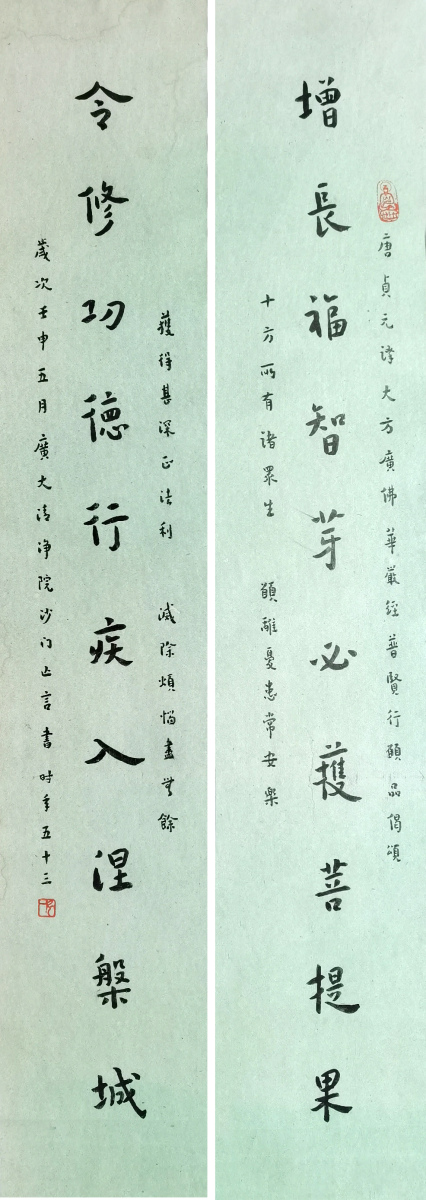 唐貞元譯大方廣佛華嚴經普賢行願品偈頌
增長福智芽必獲菩提果
十方所有諸眾生 願離憂患常安樂
獲得甚深正法利 滅除煩惱盡無餘
令修功德行疾入涅槃城
歲次壬申五月廣大清淨院沙门止言書時年五十三